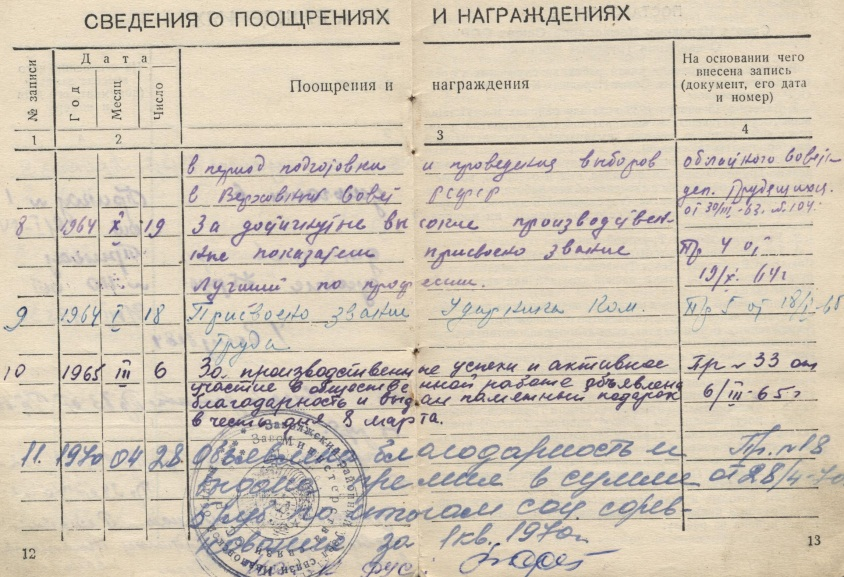 СВЕДЕНИЯ О ПООЩРЕНИЯХ И НАГРАЖДЕНИЯХ
№ записи
Дата
Год
Месяц
Число
Поощрения и награждения
На основании чего
внесена запись
(документ, его дата
и номер)
1 2 3 4
в период подготовки и проведения выборов
в Верховный Совет РСФСР
от 30/III-63.
8 1964 X 19 За достигнутые высокие производствен-
ные показатели присвоено звание Пр 4 от
Лучший по профессии. 19/X. 64г
9 1964 I 18 Присвоено звание Ударника Ком. Пр 5 от 18/I-65
Труда.
10 1965 III 6 За производственные успехи и активное Пр № 33 от
участие в общественной работе объявлена 6/III-65г
благодарность и выдан памятный подарок
в честь дня 8 марта.
11. 1970 04 28 Объявлена благодарность и Пр. №18
выдана премия в сумме от 28/4-70
по итогам соц сорев-
нования за 1 кв. 1970г
12 13